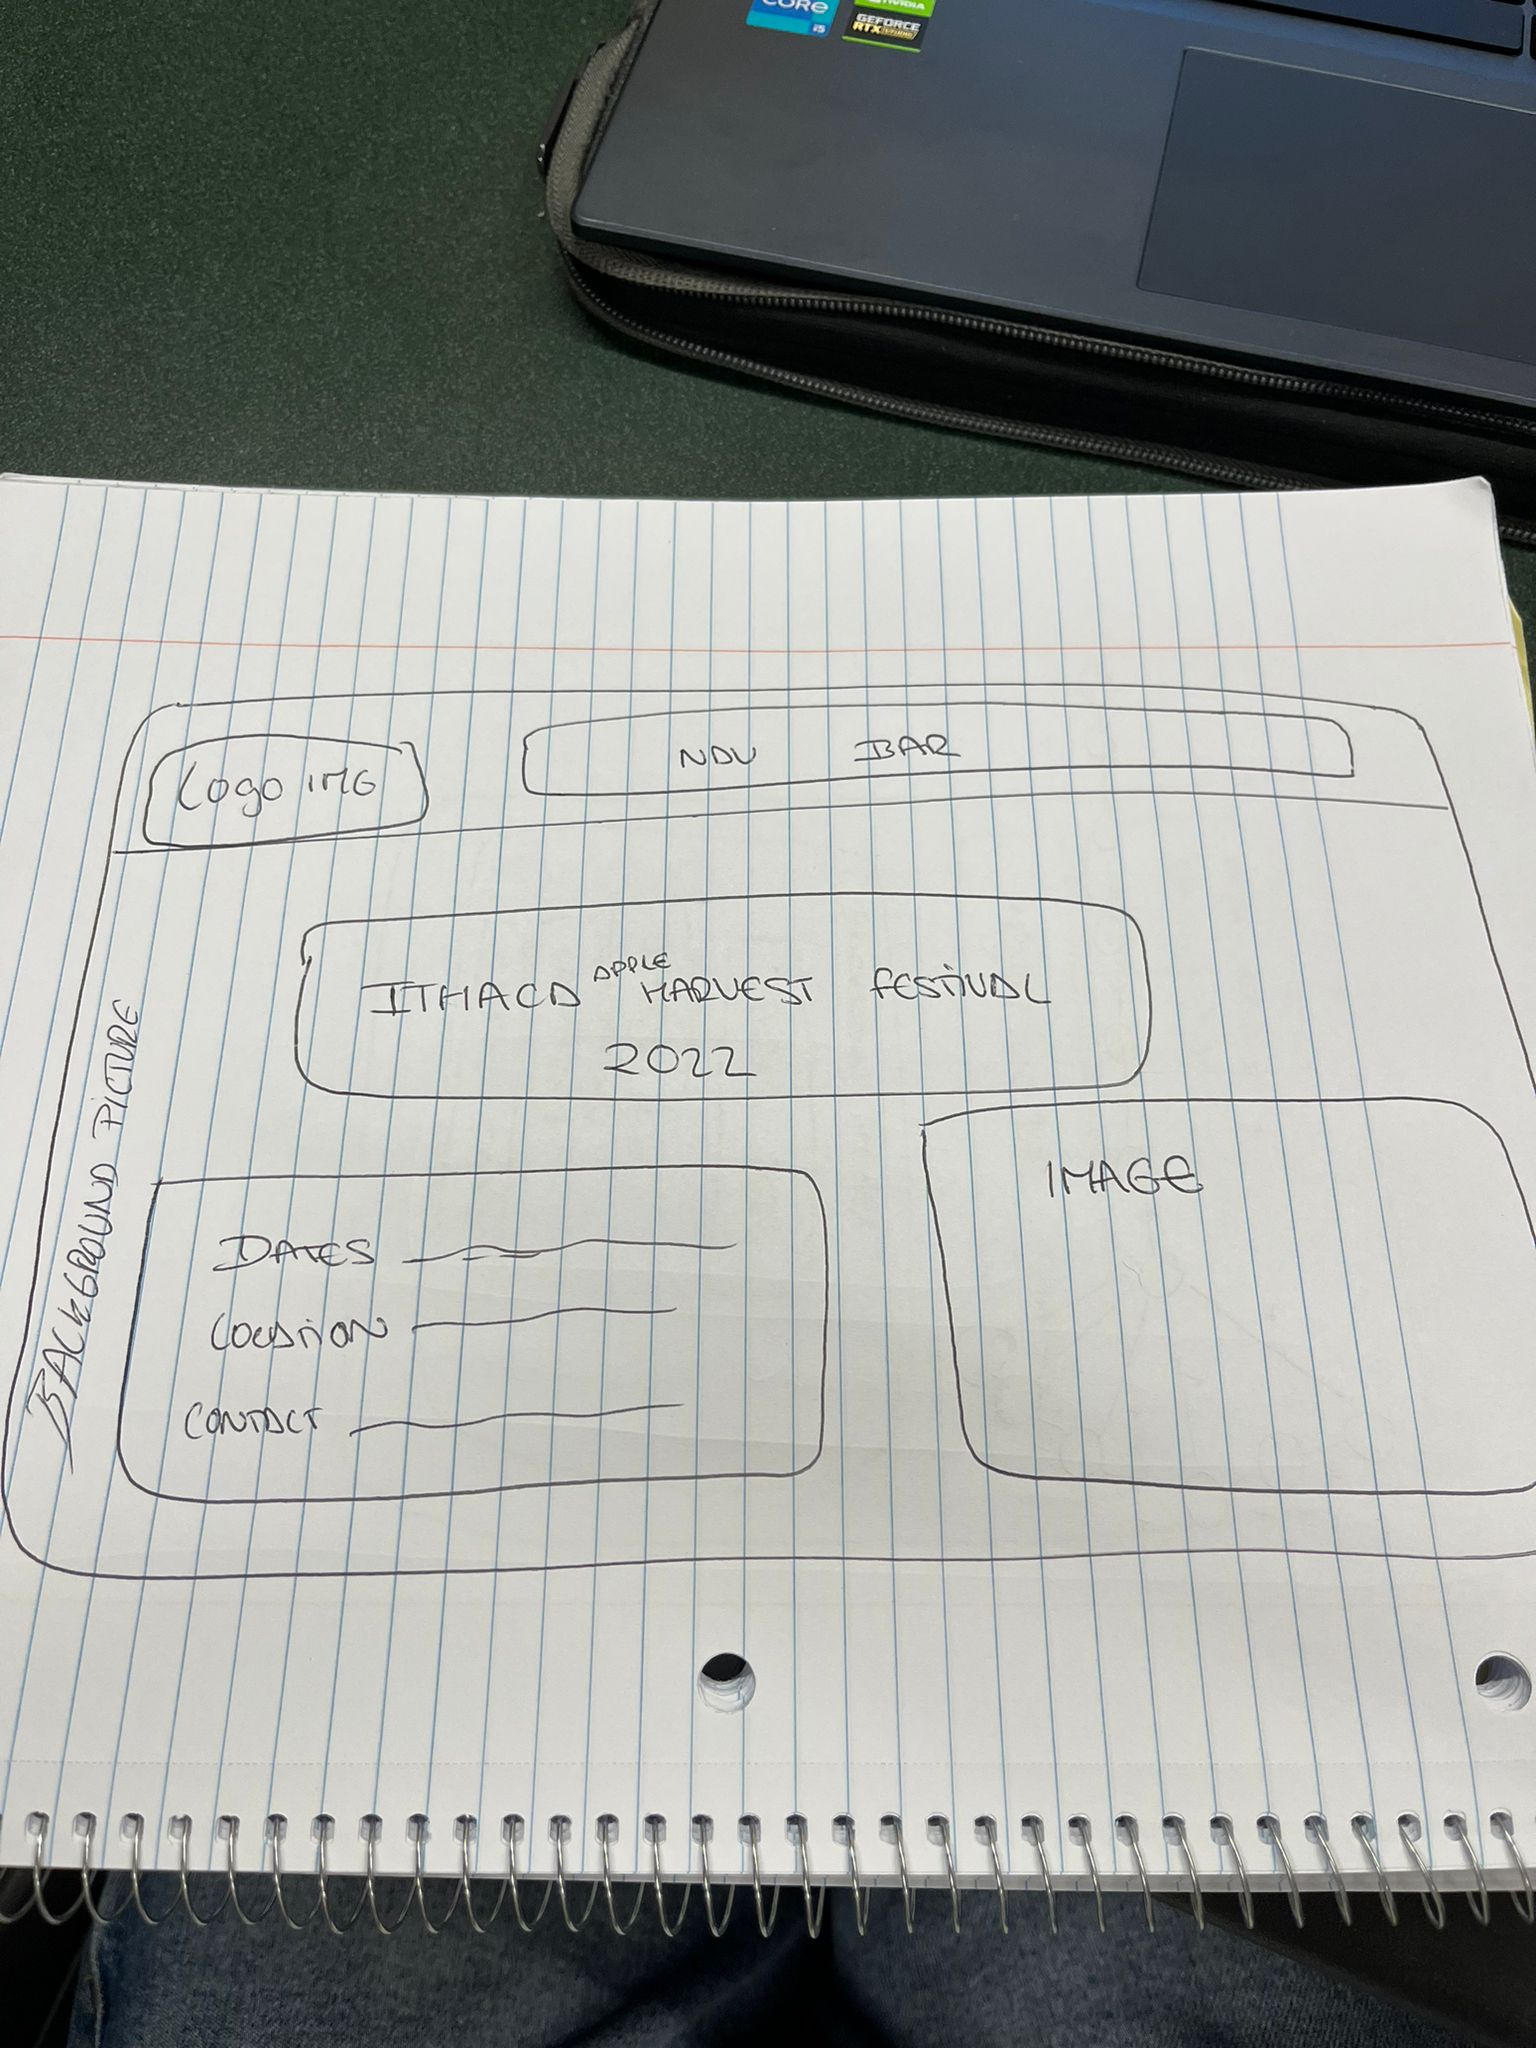 CORE
i5
NVIDIA
GEFORCE
RTX STUDIO
Logo IMG
NAV BAR
ITHACA APPLE HARVEST FESTIVAL
2022
BACKGROUND PICTURE
DATES
LOCATION
CONTACT
IMAGE